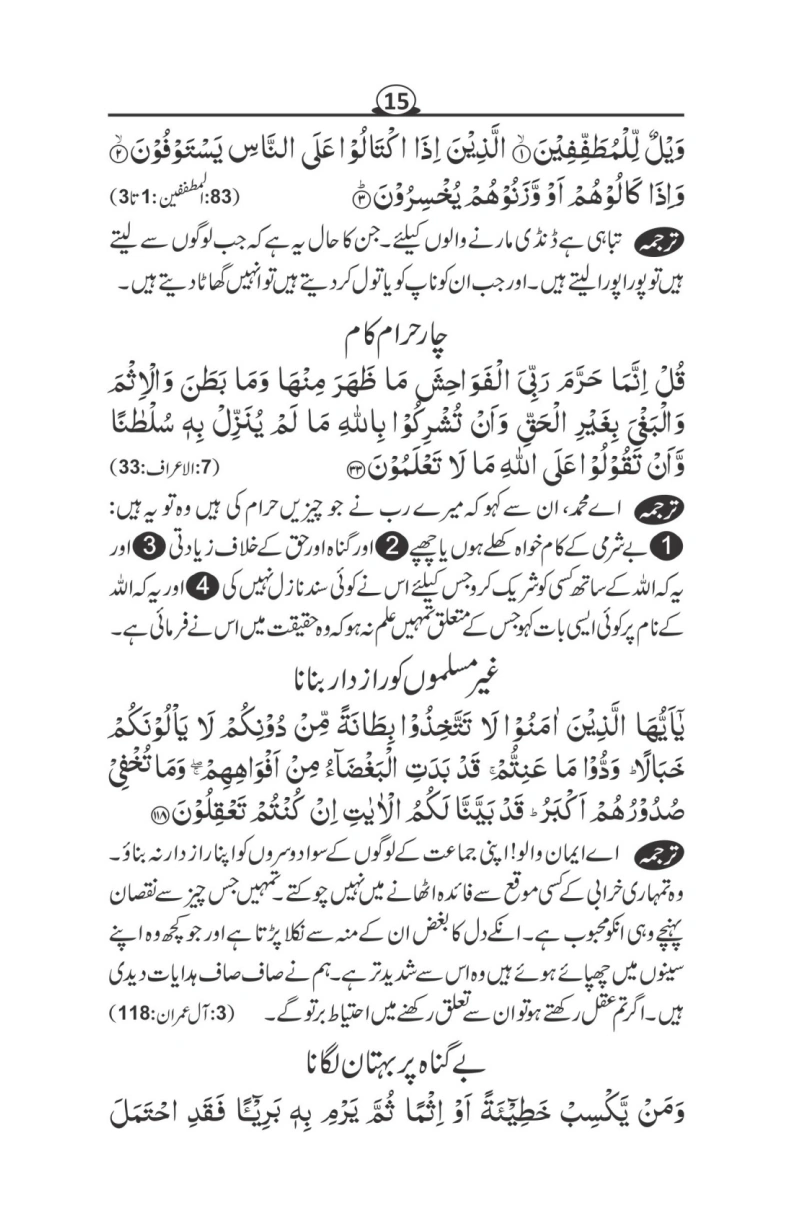 15
وَيْلٌ لِّلْمُطَفِّفِيْنَ ۙ﴿۱﴾ الَّذِيْنَ اِذَا اكْتَالُوْا عَلَى النَّاسِ يَسْتَوْفُوْنَ ۙ﴿۲﴾
وَاِذَا كَالُوْهُمْ اَوْ وَّزَنُوْهُمْ يُخْسِرُوْنَ ؕ﴿۳﴾ (83:المطففین:1تا3)
ترجمہ تباہی ہے ڈنڈی مارنے والوں کیلئے۔ جن کا حال یہ ہے کہ جب لوگوں سے لیتے
ہیں تو پورا پورا لیتے ہیں۔ اور جب ان کو ناپ کو یا تول کر دیتے ہیں تو انہیں گھاٹا دیتے ہیں۔
چار حرام کام
قُلْ اِنَّمَا حَرَّمَ رَبِّىَ الْفَوَاحِشَ مَا ظَهَرَ مِنْهَا وَمَا بَطَنَ وَالْاِثْمَ
وَالْبَغْىَ بِغَيْرِ الْحَقِّ وَاَنْ تُشْرِكُوْا بِاللّٰهِ مَا لَمْ يُنَزِّلْ بِهٖ سُلْطٰنًا
وَّاَنْ تَقُوْلُوْا عَلَى اللّٰهِ مَا لَا تَعْلَمُوْنَ ﴿۳۳﴾ (7:الاعراف:33)
ترجمہ اے محمد، ان سے کہو کہ میرے رب نے جو چیزیں حرام کی ہیں وہ تو یہ ہیں:
1 بے شرمی کے کام خواہ کھلے ہوں یا چھپے 2 اور گناہ اور حق کے خلاف زیادتی 3 اور
یہ کہ اللہ کے ساتھ کسی کو شریک کرو جس کیلئے اس نے کوئی سند نازل نہیں کی 4 اور یہ کہ اللہ
کے نام پر کوئی ایسی بات کہو جس کے متعلق تمہیں علم نہ ہو کہ وہ حقیقت میں اس نے فرمائی ہے۔
غیر مسلموں کو راز دار بنانا
يٰٓاَيُّهَا الَّذِيْنَ اٰمَنُوْا لَا تَتَّخِذُوْا بِطَانَةً مِّنْ دُوْنِكُمْ لَا يَاْلُوْنَكُمْ
خَبَالًا ؕ وَدُّوْا مَا عَنِتُّمْ ۚ قَدْ بَدَتِ الْبَغْضَآءُ مِنْ اَفْوَاهِهِمْ ۖ وَمَا تُخْفِىْ
صُدُوْرُهُمْ اَكْبَرُ ؕ قَدْ بَيَّنَّا لَكُمُ الْاٰيٰتِ اِنْ كُنْتُمْ تَعْقِلُوْنَ ﴿۱۱۸﴾
ترجمہ اے ایمان والو! اپنی جماعت کے لوگوں کے سوا دوسروں کو اپنا راز دار نہ بناؤ۔
وہ تمہاری خرابی کے کسی موقع سے فائدہ اٹھانے میں نہیں چوکتے۔ تمہیں جس چیز سے نقصان
پہنچے وہی انکو محبوب ہے۔ انکے دل کا بغض ان کے منہ سے نکلا پڑتا ہے اور جو کچھ وہ اپنے
سینوں میں چھپائے ہوئے ہیں وہ اس سے شدید تر ہے۔ ہم نے صاف صاف ہدایات دیدی
ہیں۔ اگر تم عقل رکھتے ہو تو ان سے تعلق رکھنے میں احتیاط برتو گے۔ (3:آل عمران:118)
بے گناہ پر بہتان لگانا
وَمَنْ يَّكْسِبْ خَطِيْٓئَةً اَوْ اِثْمًا ثُمَّ يَرْمِ بِهٖ بَرِيْٓـًٔا فَقَدِ احْتَمَلَ